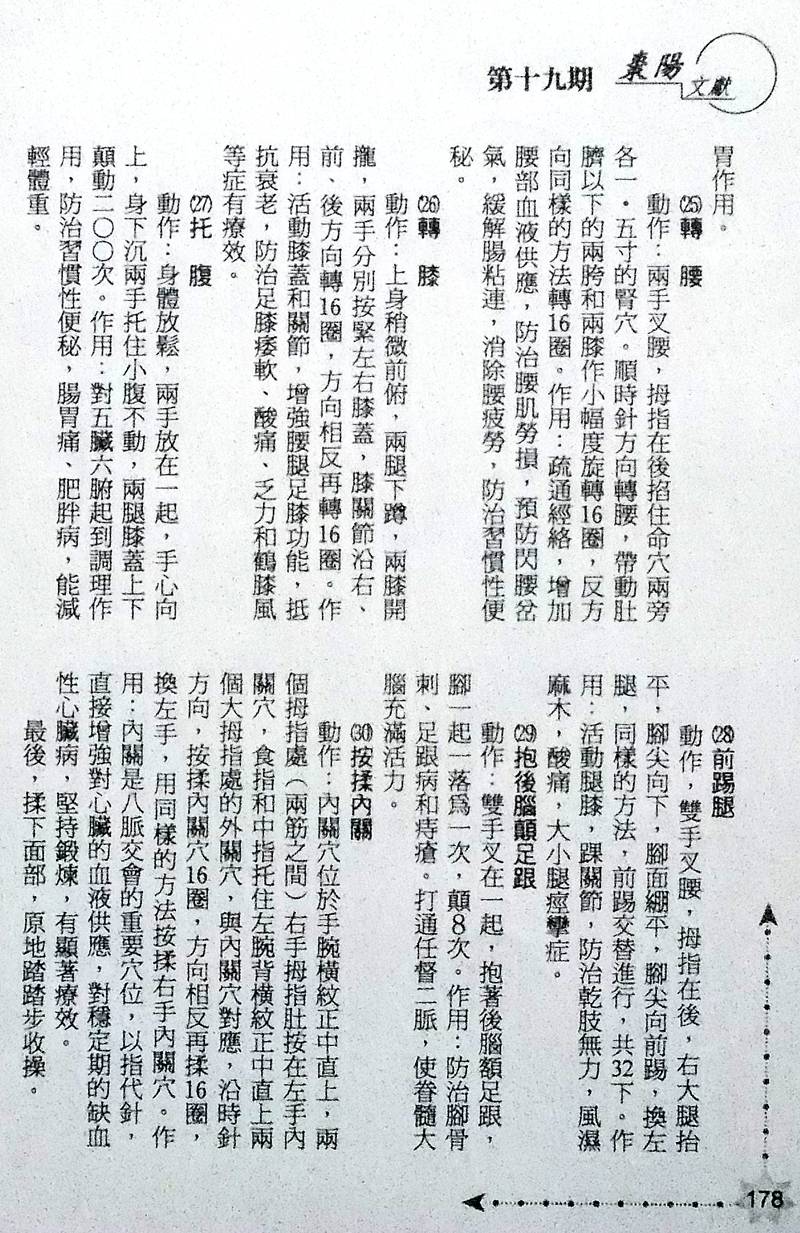 第十九期
棗陽
文獻
胃作用。
(25)轉　腰
動作：兩手叉腰，拇指在後掐住命穴兩旁
各一．五寸的腎穴。順時針方向轉腰，帶動肚
臍以下的兩胯和兩膝作小幅度旋轉16圈，反方
向同樣的方法轉16圈。作用：疏通經絡，增加
腰部血液供應，防治腰肌勞損，預防閃腰岔
氣，緩解腸粘連，消除腰疲勞，防治習慣性便
秘。
(26)轉　膝
動作：上身稍微前俯，兩腿下蹲，兩膝開
攏，兩手分別按緊左右膝蓋，膝關節沿右、
前、後方向轉16圈，方向相反再轉16圈。作
用：活動膝蓋和關節，增強腰腿足膝功能，抵
抗衰老，防治足膝痿軟、酸痛、乏力和鶴膝風
等症有療效。
(27)托　腹
動作：身體放鬆，兩手放在一起，手心向
上，身下沉兩手托住小腹不動，兩腿膝蓋上下
顛動二〇〇次。作用：對五臟六腑起到調理作
用，防治習慣性便秘，腸胃痛、肥胖病，能減
輕體重。
(28)前踢腿
動作，雙手叉腰，拇指在後，右大腿抬
平，腳尖向下，腳面繃平，腳尖向前踢，換左
腿，同樣的方法，前踢交替進行，共32下。作
用：活動腿膝，踝關節，防治乾肢無力，風濕
麻木，酸痛，大小腿痙攣症。
(29)抱後腦顛足跟
動作：雙手叉在一起，抱著後腦額足跟，
腳一起一落為一次，顛8次。作用：防治腳骨
刺、足跟病和痔瘡。打通任督二脈，使脊髓大
腦充滿活力。
(30)按揉內關
動作：內關穴位於手腕橫紋正中直上，兩
個拇指處（兩筋之間）右手拇指肚按在左手內
關穴，食指和中指托住左腕背橫紋正中直上兩
個大拇指處的外關穴，與內關穴對應，沿時針
方向，按揉內關穴16圈，方向相反再揉16圈，
換左手，用同樣的方法按揉右手內關穴。作
用：內關是八脈交會的重要穴位，以指代針，
直接增強對心臟的血液供應，對穩定期的缺血
性心臟病，堅持鍛煉，有顯著療效。
最後，揉下面部，原地踏踏步收操。
178